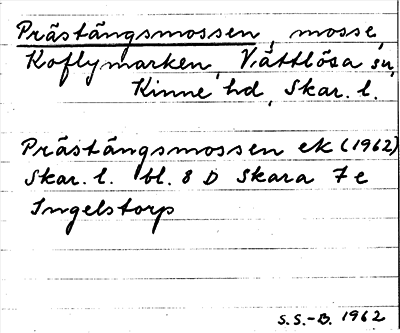 Prästängsmossen, mosse,
Koflymarken, Vättlösa sn,
Kinne hd, Skar. l.
Prästängsmossen ek (1962)
Skar. l. bl. 8 D Skara 7 e
Ingelstorp
S.S.-B. 1962